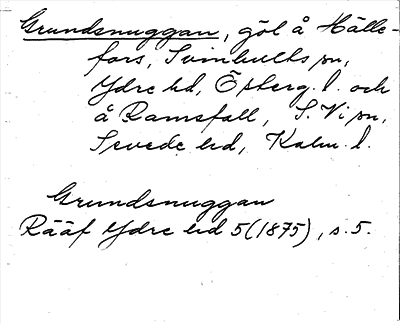 Grundsnuggan, göl å Hälle-
fors, Svinhults sn,
Ydre hd, Östberg. l. och
å Ramsfall, S. Vi sn,
Sevede hd, Kalm. l.
Grundsnuggan
Rääf Ydre hd 5 (1875), s. 5.